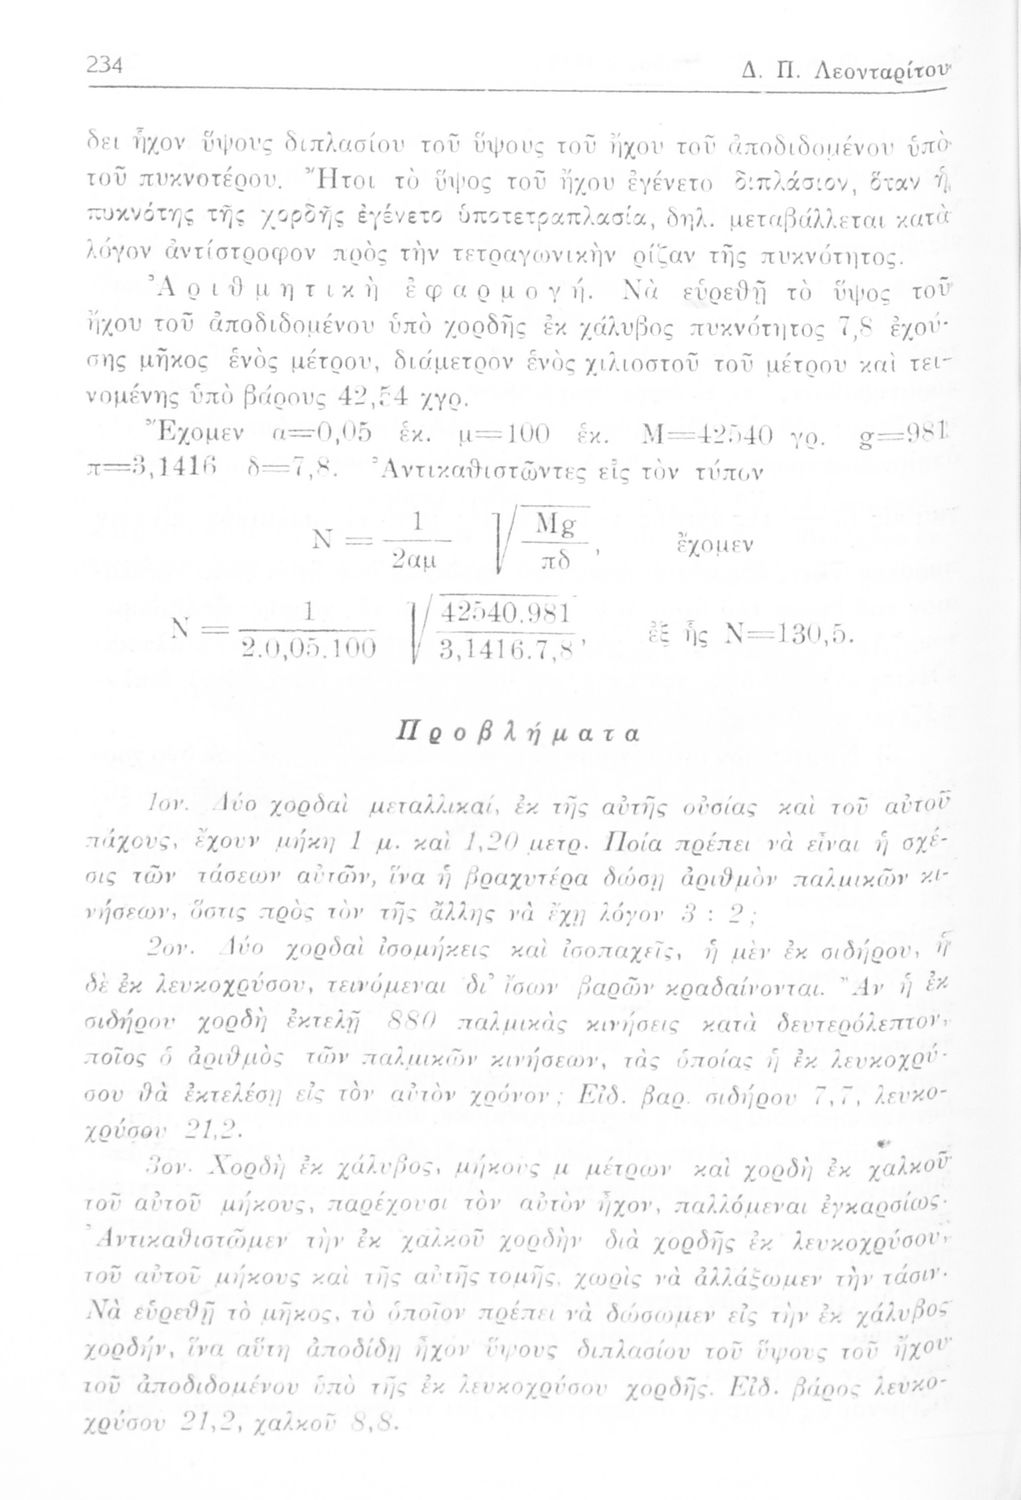 234
Δ. Π. Λεονταρίτου
δει ἦχον ὕψους διπλασίου τοῦ ὕψους τοῦ ἤχου τοῦ ἀποδιδομένου ὑπὸ
τοῦ πυκνοτέρου. Ἤτοι τὸ ὕψος τοῦ ἤχου ἐγένετο διπλάσιον, ὅταν ἡ
πυκνότης τῆς χορδῆς ἐγένετο ὑποτετραπλασία, δηλ. μεταβάλλεται κατὰ
λόγον ἀντίστροφον πρὸς τὴν τετραγωνικὴν ρίζαν τῆς πυκνότητος.
Ἀριθμητικὴ ἐφαρμογή. Νὰ εὑρεθῇ τὸ ὕψος τοῦ
ἤχου τοῦ ἀποδιδομένου ὑπὸ χορδῆς ἐκ χάλυβος πυκνότητος 7,8 ἐχού-
σης μῆκος ἑνὸς μέτρου, διάμετρον ἑνὸς χιλιοστοῦ τοῦ μέτρου καὶ τει-
νομένης ὑπὸ βάρους 42,54 χγρ.
Ἔχομεν α=0,05 ἑκ. μ=100 ἑκ. Μ=42540 γρ. g=981
π=3,1416 δ=7,8. Ἀντικαθιστῶντες εἰς τὸν τύπον
N = 1/2αμ √Mg/πδ, ἔχομεν
N = 1/2.0,05.100 √42540.981/3,1416.7,8, ἐξ ἧς N=130,5.
Προβλήματα
1ον. Δύο χορδαὶ μεταλλικαί, ἐκ τῆς αὐτῆς οὐσίας καὶ τοῦ αὐτοῦ
πάχους, ἔχουν μήκη 1 μ. καὶ 1,20 μετρ. Ποία πρέπει νὰ εἶναι ἡ σχέ-
σις τῶν τάσεων αὐτῶν, ἵνα ἡ βραχυτέρα δώσῃ ἀριθμὸν παλμικῶν κι-
νήσεων, ὅστις πρὸς τὸν τῆς ἄλλης νὰ ἔχῃ λόγον 3 : 2 ;
2ον. Δύο χορδαὶ ἰσομήκεις καὶ ἰσοπαχεῖς, ἡ μὲν ἐκ σιδήρου, ἡ
δὲ ἐκ λευκοχρύσου, τεινόμεναι δι' ἴσων βαρῶν κραδαίνονται. Ἂν ἡ ἐκ
σιδήρου χορδὴ ἐκτελῇ 880 παλμικὰς κινήσεις κατὰ δευτερόλεπτον,
ποῖος ὁ ἀριθμὸς τῶν παλμικῶν κινήσεων, τὰς ὁποίας ἡ ἐκ λευκοχρύ-
σου θὰ ἐκτελέσῃ εἰς τὸν αὐτὸν χρόνον ; Εἰδ. βαρ. σιδήρου 7,7, λευκο-
χρύσου 21,2.
3ον. Χορδὴ ἐκ χάλυβος, μήκους μ μέτρων καὶ χορδὴ ἐκ χαλκοῦ
τοῦ αὐτοῦ μήκους, παρέχουσι τὸν αὐτὸν ἦχον, παλλόμεναι ἐγκαρσίως.
Ἀντικαθιστῶμεν τὴν ἐκ χαλκοῦ χορδὴν διὰ χορδῆς ἐκ λευκοχρύσου,
τοῦ αὐτοῦ μήκους καὶ τῆς αὐτῆς τομῆς, χωρὶς νὰ ἀλλάξωμεν τὴν τάσιν.
Νὰ εὑρεθῇ τὸ μῆκος, τὸ ὁποῖον πρέπει νὰ δώσωμεν εἰς τὴν ἐκ χάλυβος
χορδήν, ἵνα αὕτη ἀποδίδῃ ἦχον ὕψους διπλασίου τοῦ ὕψους τοῦ ἤχου
τοῦ ἀποδιδομένου ὑπὸ τῆς ἐκ λευκοχρύσου χορδῆς. Εἰδ. βάρος λευκο-
χρύσου 21,2, χαλκοῦ 8,8.